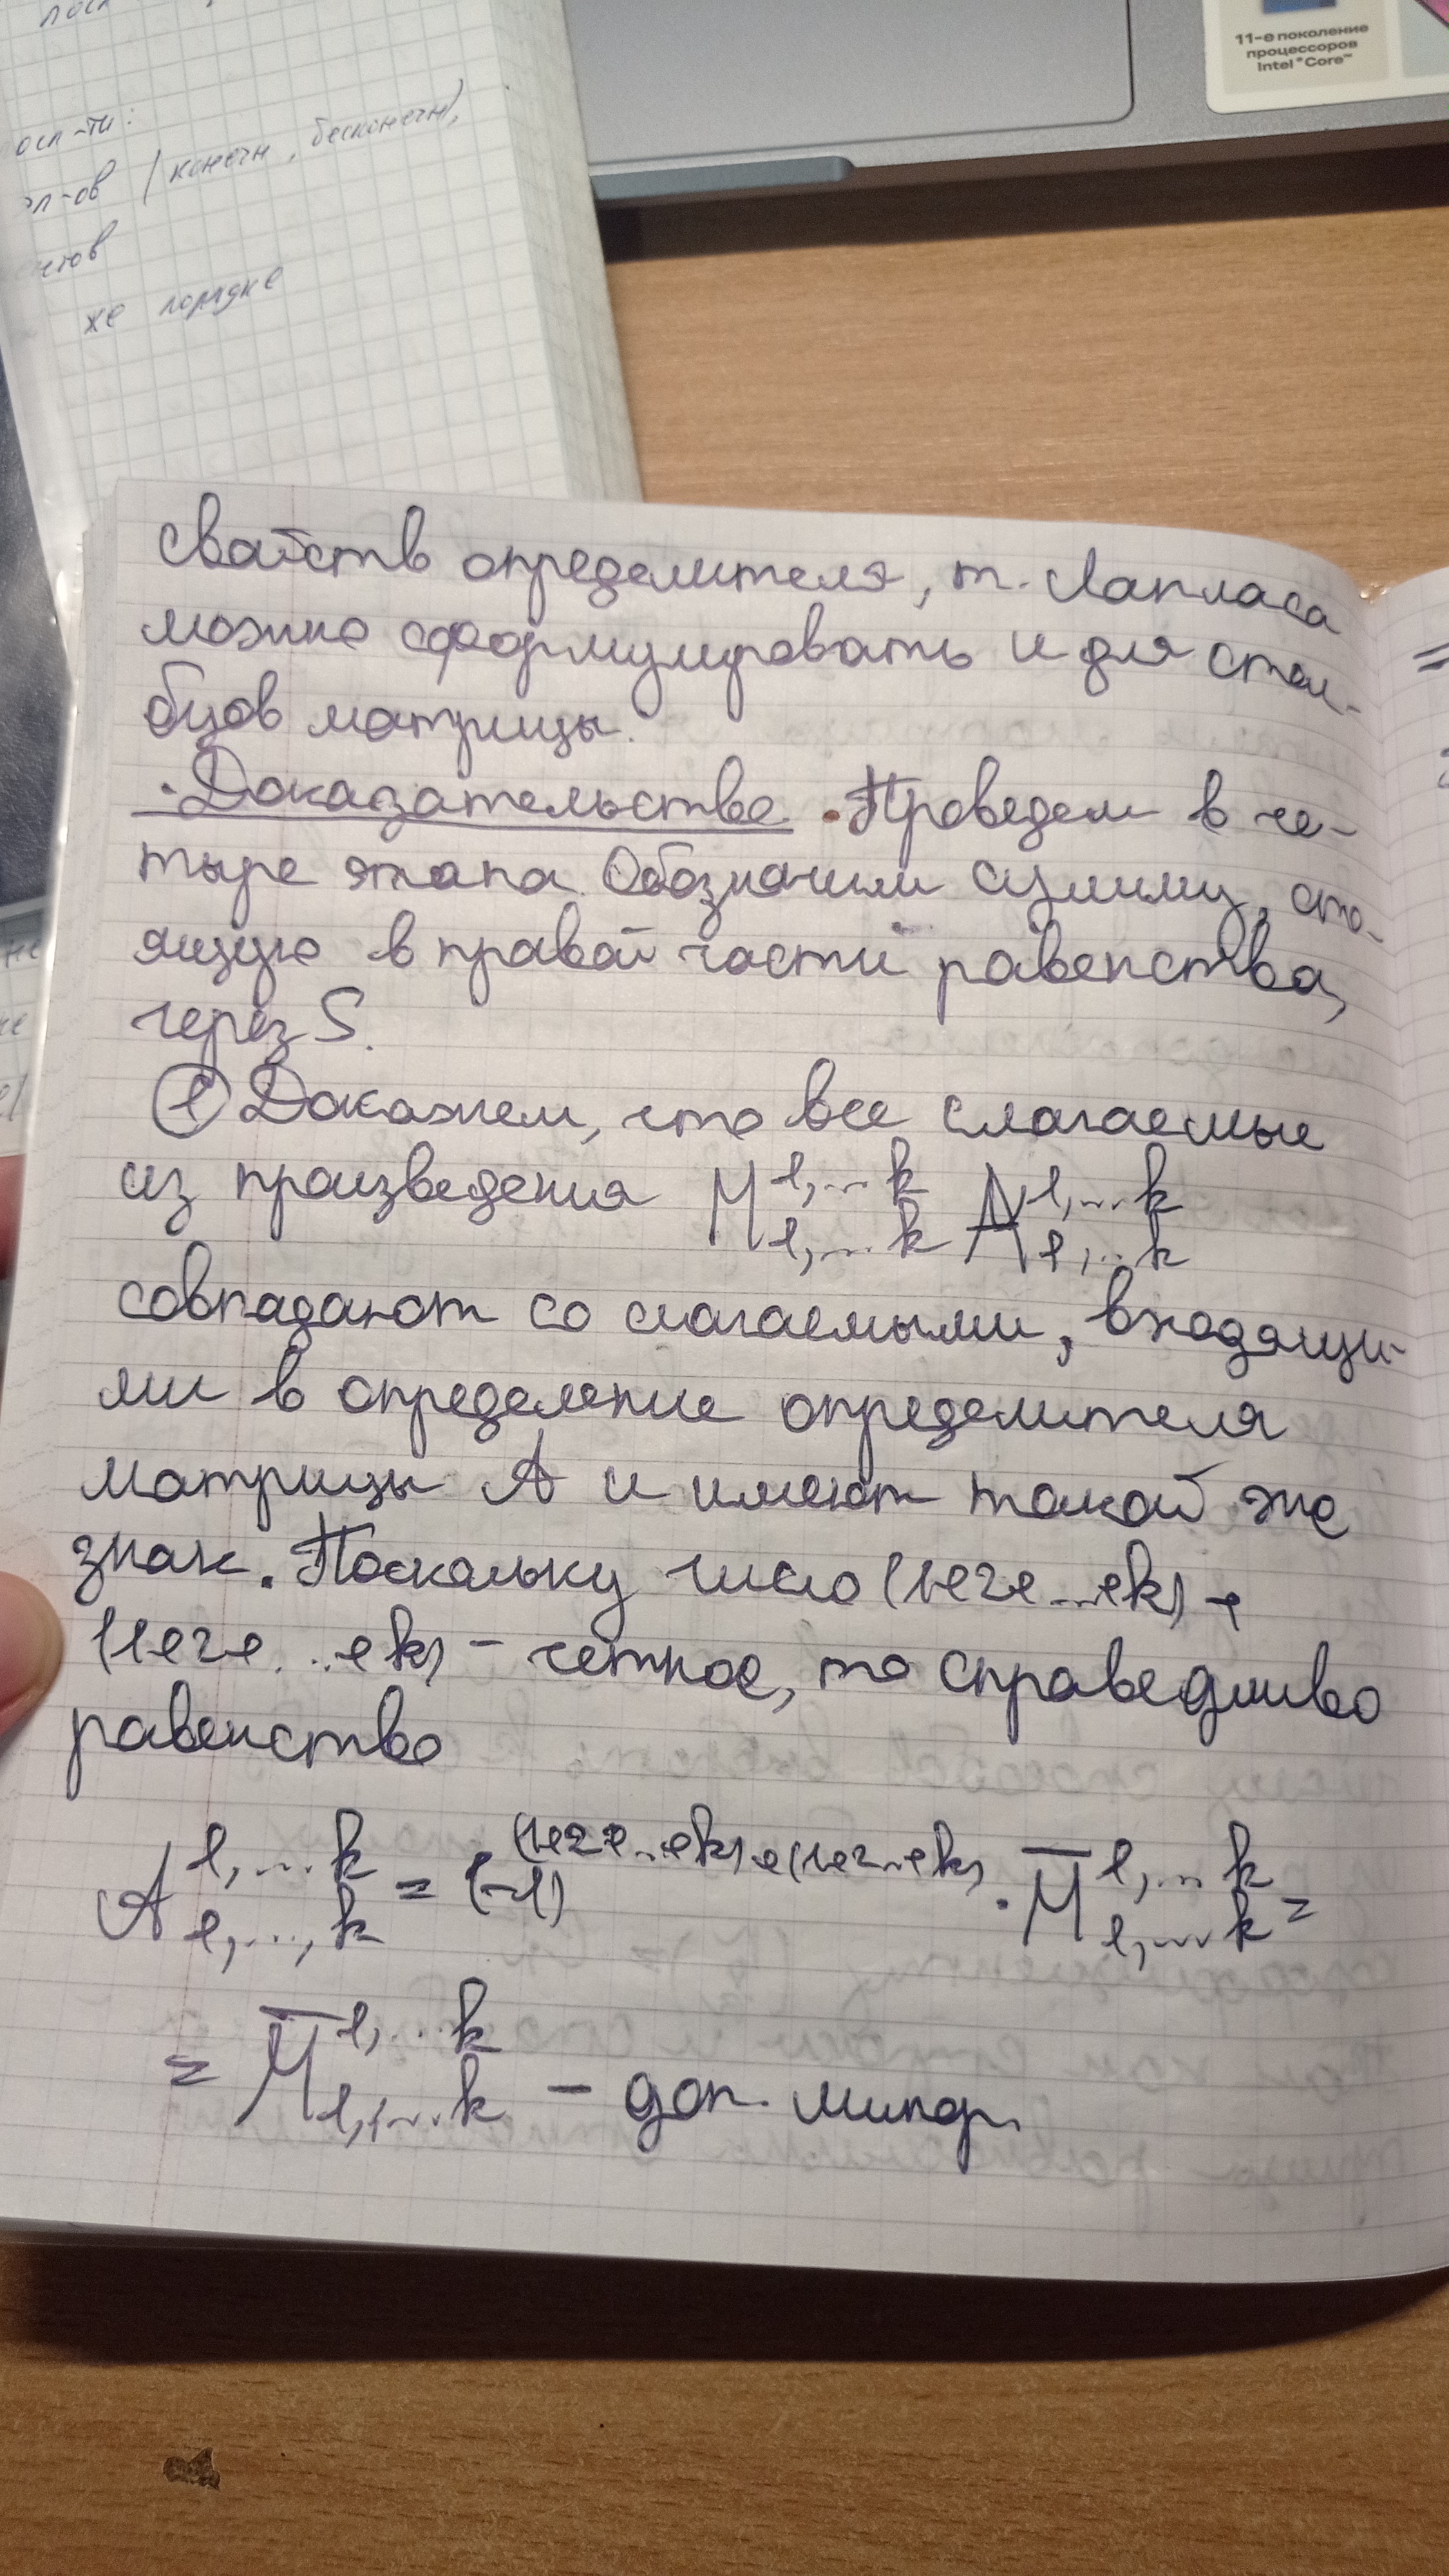 осл-ти:
эл-ов (конечн, бесконечн),
ентов
же порядке
11-е поколение
процессоров
Intel® Core™
свойств определителя, т. Лапласа
можно сформулировать и для стол-
бцов матрицы.
Доказательство. Проведем в че-
тыре этапа. Обозначим сумму, сто-
ящую в правой части равенства,
через S.
① Докажем, что все слагаемые
из произведения M^{1,...k}_{1,...k} A^{1,...k}_{1,...k}
совпадают со слагаемыми, входящи-
ми в определение определителя
матрицы A и имеют такой же
знак. Поскольку число (1+2+...+k)+
(1+2+...+k) - четное, то справедливо
равенство
A^{1,...k}_{1,...,k} = (-1)^{(1+2+...+k)+(1+2+...+k)} · M̅^{1,...k}_{1,...k} =
= M̅^{1,...k}_{1,...k} - доп. минор.